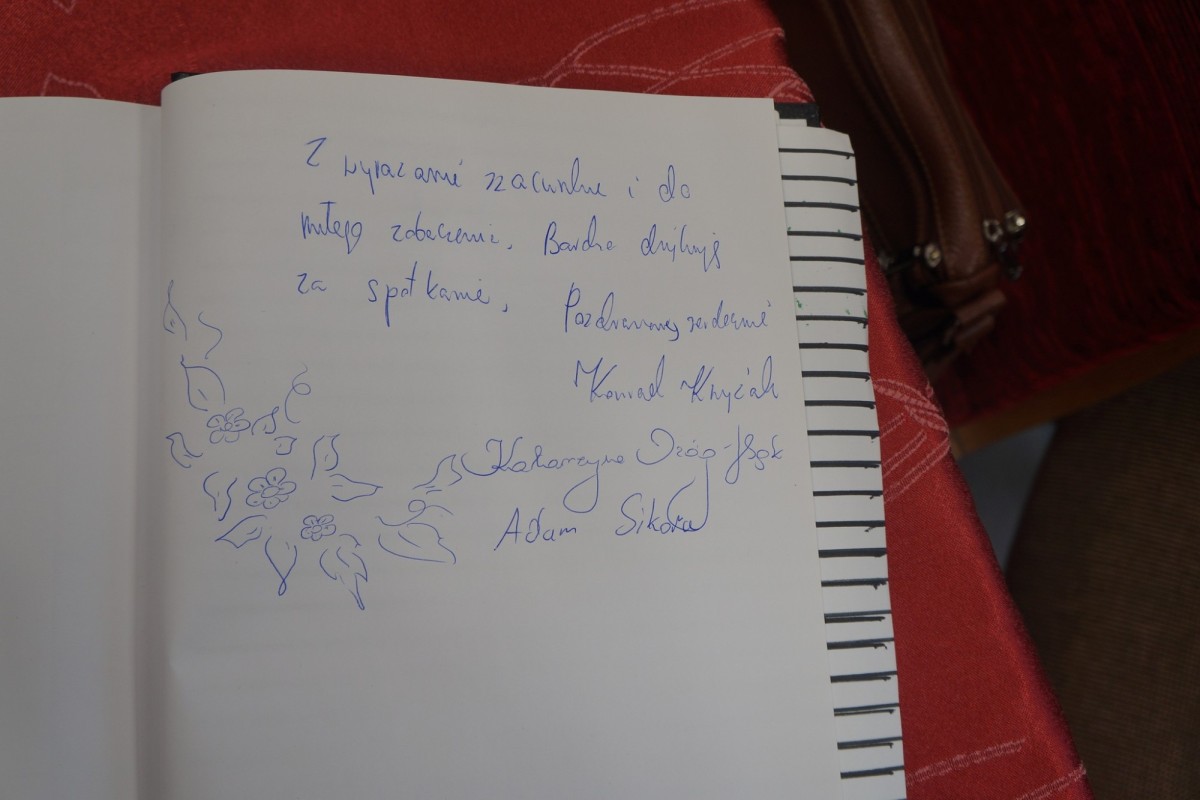 Z wyrazami szacunku i do
miłego zobaczenia. Bardzo dziękuję
za spotkanie. Pozdrawiamy serdecznie
Konrad
Katarzyna
Adam Sikora